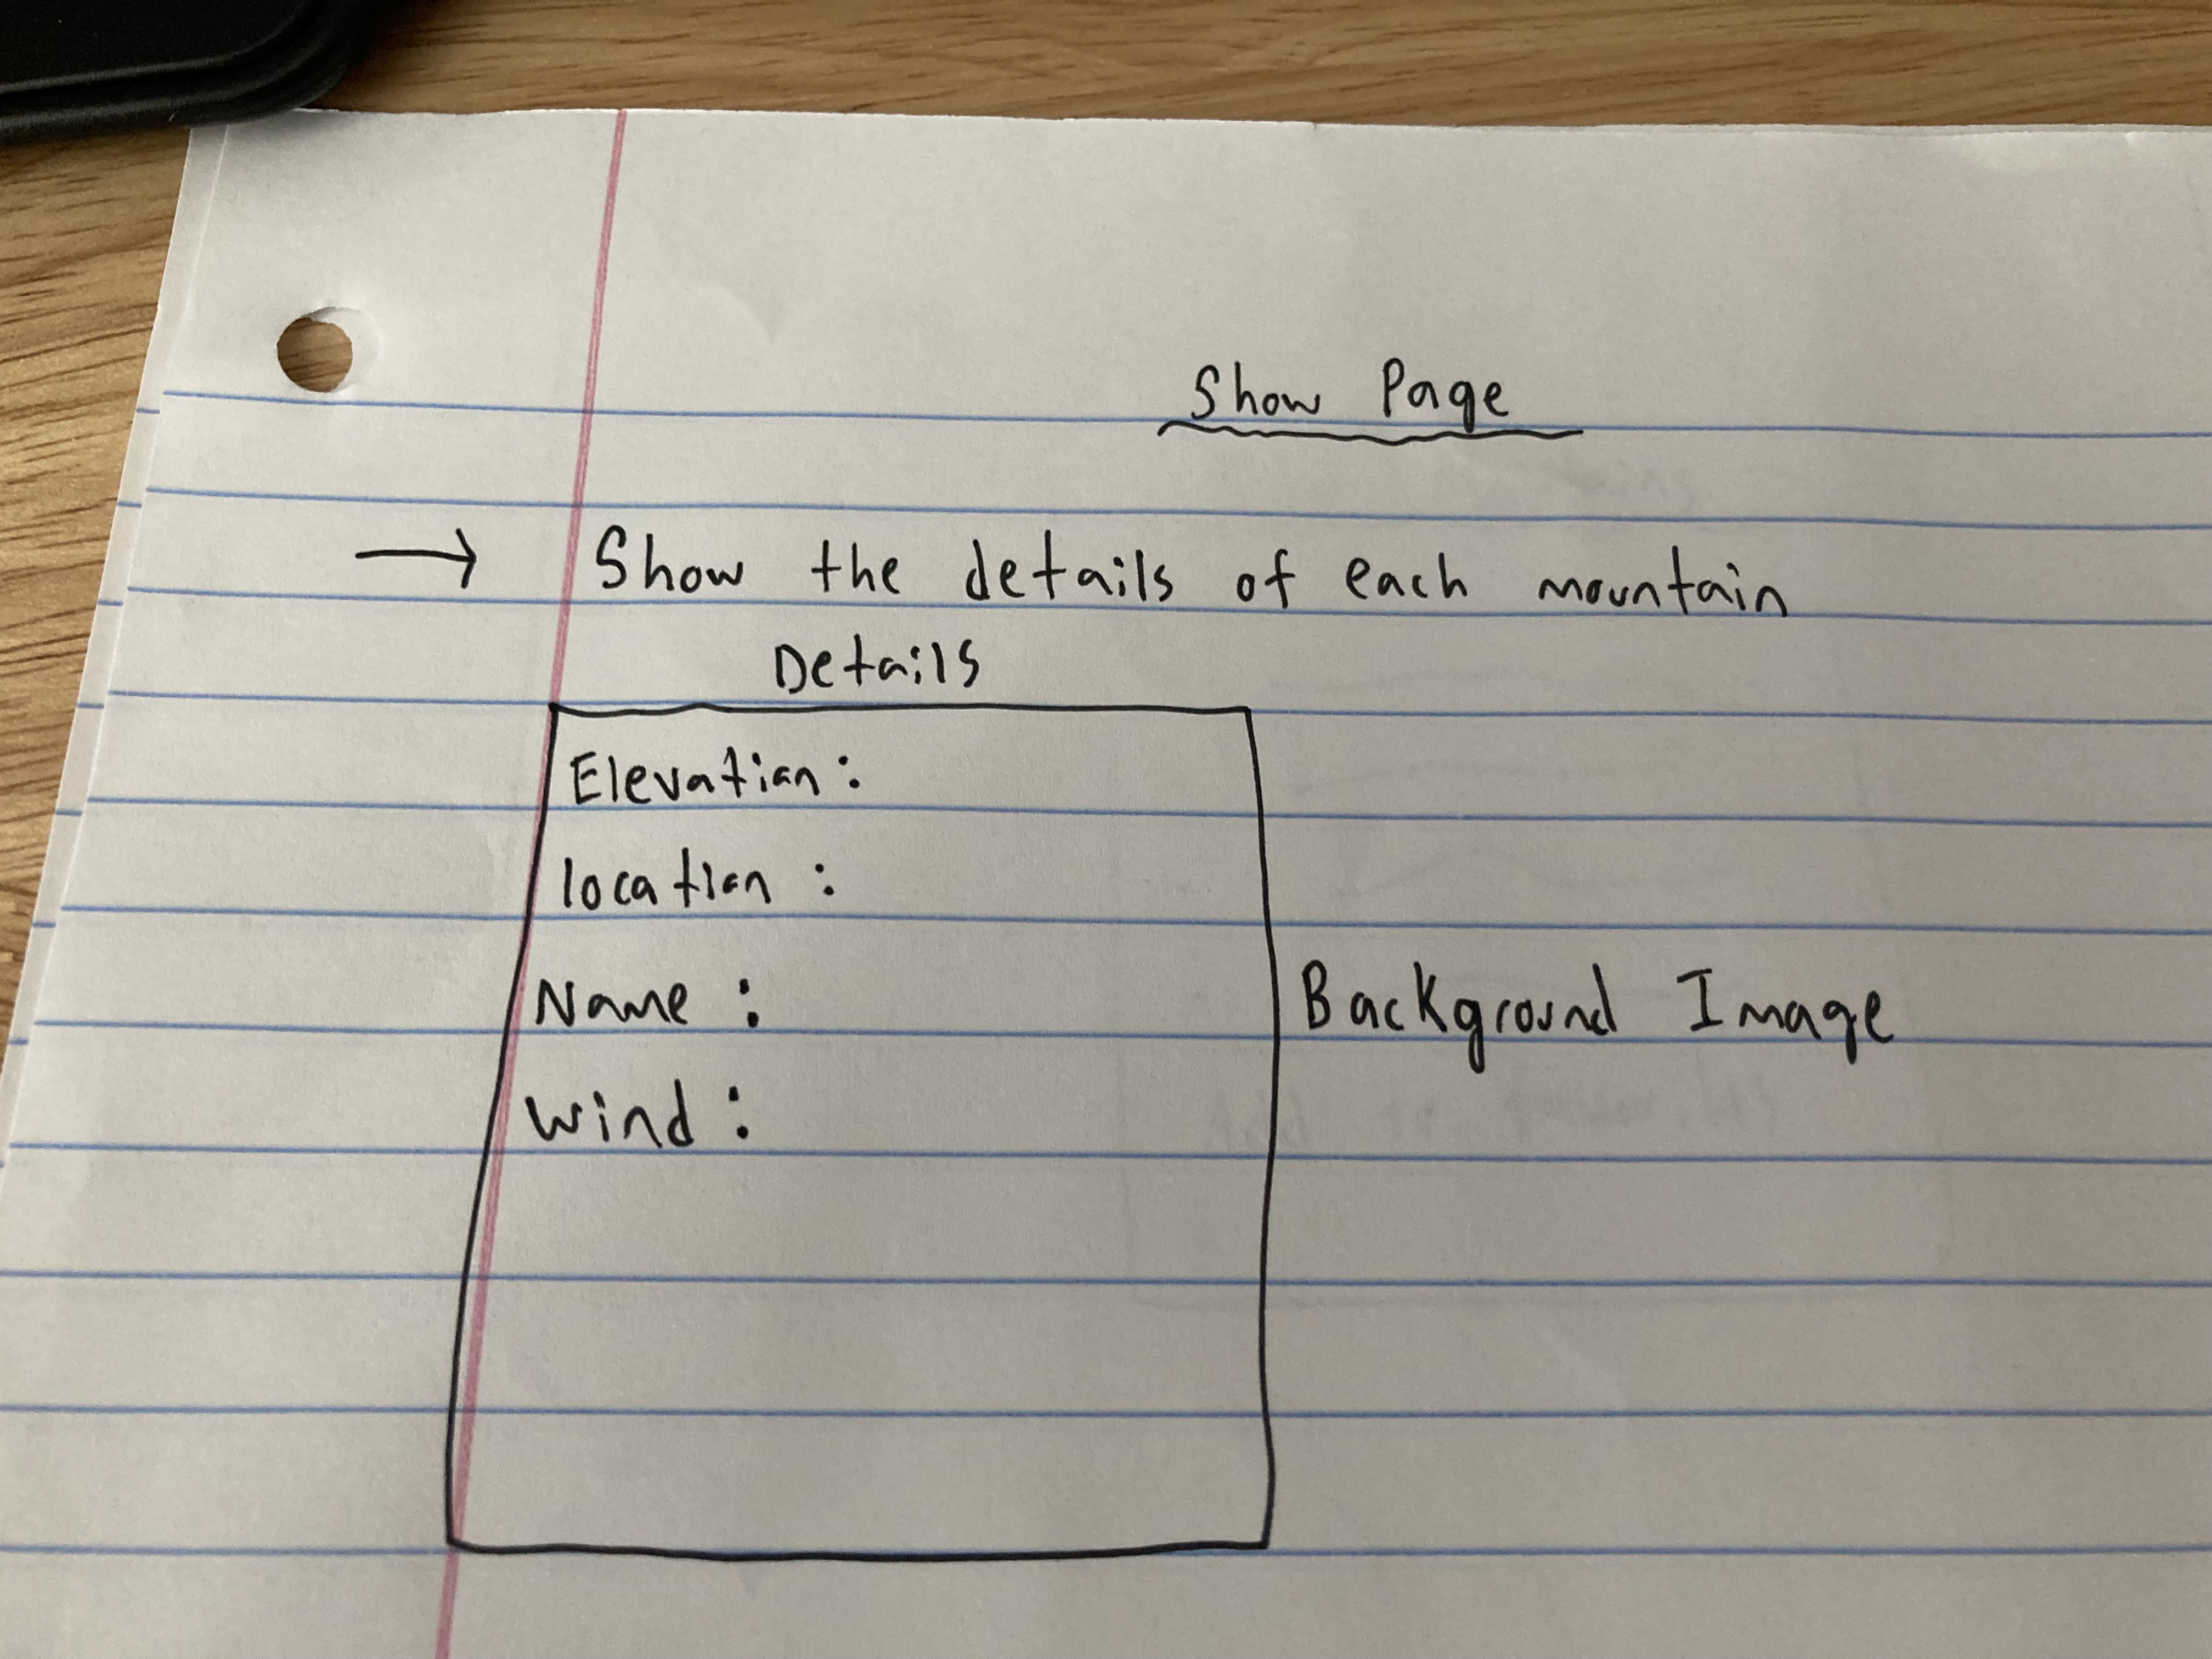 Show Page
→ Show the details of each mountain
Details
Elevation:
location:
Name:
wind:
Background Image